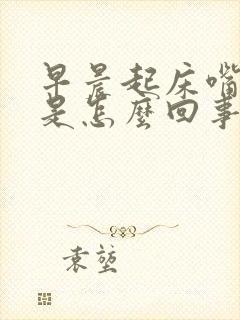 早晨起床嘴
是怎麼回事
袁堃